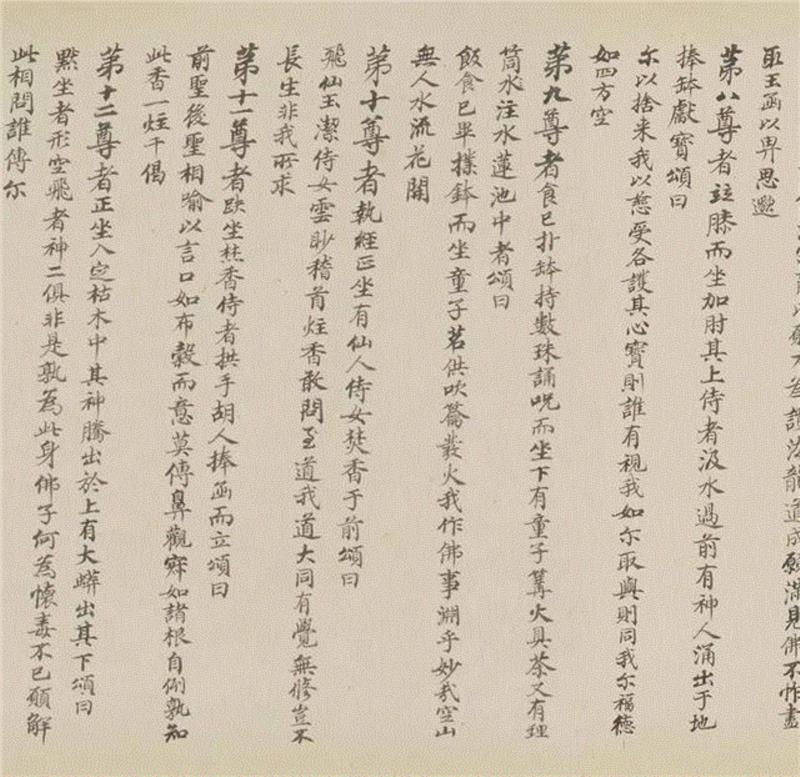 以願力為護法龍道成願滿見佛不怍盡
取玉函以畀思邈
第八尊者竝膝而坐加肘其上侍者汲水過前有神人涌出于地
捧鉢獻寶頌曰
尔以捨来我以慈受各護其心寶則誰有視我如尔取與則同我尔福德
如四方空
第九尊者食已扑鉢持數珠誦呪而坐下有童子篝火具茶又有理
筒水注水蓮池中者頌曰
飯食已畢撲鉢而坐童子茗供吹籥發火我作佛事淵乎妙哉空山
無人水流花開
第十尊者執經正坐有仙人侍女焚香于前頌曰
飛仙玉潔侍女雲眇稽首炷香敢問至道我道大同有覺無修豈不
長生非我所求
第十一尊者趺坐焚香侍者拱手胡人捧函而立頌曰
前聖後聖相喻以言口如布穀而意莫傳鼻觀寂如諸根自例孰知
此香一炷千偈
第十二尊者正坐入定枯木中其神騰出於上有大蟒出其下頌曰
默坐者形空飛者神二俱非是孰為此身佛子何為懷毒不已願解
此相問誰縛尔